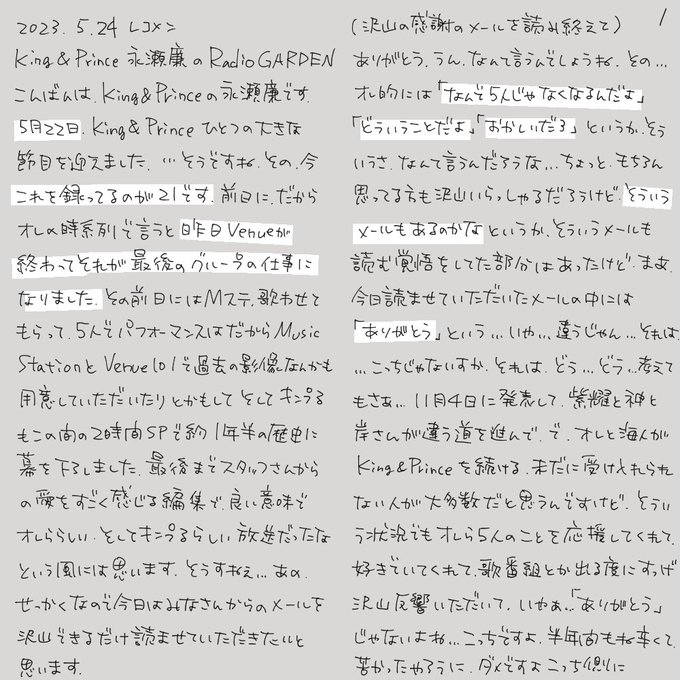 2023.5.24 レコメン
King&Prince 永瀬廉のRadioGARDEN
こんばんは、King&Princeの永瀬廉です。
5月22日、King&Prince ひとつの大きな
節目を迎えました。…そうですね、その、今
これを録ってるのが21です。前日に、だから
オレの時系列で言うと昨日Venueが
終わってそれが最後のグループの仕事に
なりました。その前日にはMステ、歌わせて
もらって、5人でパフォーマンスはだからMusic
StationとVenue101で過去の影像なんかも
用意していただいたりとかもして そして キンプる
もこの向の2時間SPで約1年半の歴史に
幕を下ろしました。最後までスタッフさんから
の愛をすごく感じる編集で、良い意味で
オレららしい、そしてキンプるらしい放送だったな
という風には思います。そうすねぇ…あの、
せっかくなので今日はみなさんからのメールを
沢山できるだけ読ませていただきたいと
思います。
1
(沢山の感謝のメールを読み終えて)
ありがとう。うん、なんて言うんでしょうね、その…
オレ的には「なんで5人じゃなくなるんだよ」
「どういうことだよ」「おかしいだろ」というか、そう
いうさ、なんて言うんだろうな…ちょっと、もちろん
思ってる方も沢山いらっしゃるだろうけど、そういう
メールもあるのかなというか、そういうメールも
読む覚悟をしてた部分はあったけど、まあ、
今日読ませていただいたメールの中には
「ありがとう」という…いや…違うじゃん…それは、
…こっちじゃないすか、それは、どう…どう…考えて
もさぁ…11月4日に発表して、紫耀と神と
岸さんが違う道を進んで、で、オレと海人が
King&Princeを続ける、未だに受け入れられ
ない人が大多数だと思うんですけど、そうい
う状況でもオレら5人のことを応援してくれて、
好きでいてくれて、歌番組とか出る度にすっげ
沢山反響いただいて、いやぁ…「ありがとう」
じゃないよね…こっちですよ、半年向もね辛くて、
苦かったやろうに、ダメですよこっち側に